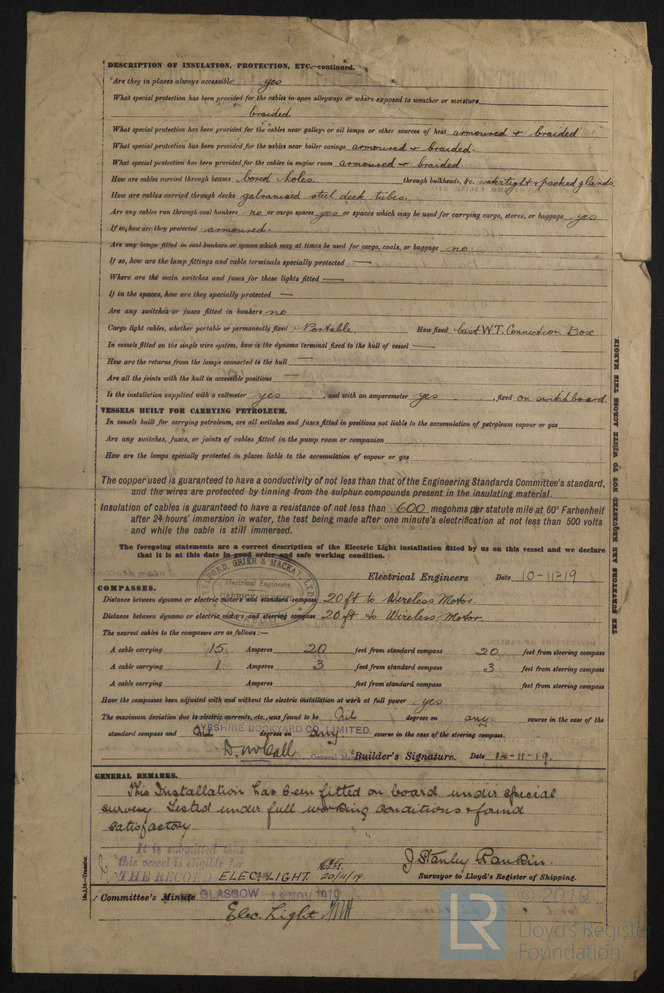 DESCRIPTION OF INSULATION, PROTECTION, ETC.—continued.
Are they in places always accessible yes
What special protection has been provided for the cables in open alleyways or where exposed to weather or moisture
braided
What special protection has been provided for the cables near galleys or oil lamps or other sources of heat armoured & braided
What special protection has been provided for the cables near boiler casings armoured & braided
What special protection has been provided for the cables in engine room armoured & braided
How are cables carried through beams bored holes through bulkheads, &c. watertight & packed glands
How are cables carried through decks galvanised steel deck tubes.
Are any cables run through coal bunkers no or cargo spaces yes or spaces which may be used for carrying cargo, stores, or baggage yes
If so, how are they protected armoured.
Are any lamps fitted in coal bunkers or spaces which may at times be used for cargo, coals, or baggage no.
If so, how are the lamp fittings and cable terminals specially protected —
Where are the main switches and fuses for these lights fitted —
If in the spaces, how are they specially protected —
Are any switches or fuses fitted in bunkers no
Cargo light cables, whether portable or permanently fixed Portable How fixed Cast W.T. Connection Box
In vessels fitted on the single wire system, how is the dynamo terminal fixed to the hull of vessel —
How are the returns from the lamps connected to the hull —
Are all the joints with the hull in accessible positions —
Is the installation supplied with a voltmeter yes, and with an amperemeter yes, fixed on switchboard
VESSELS BUILT FOR CARRYING PETROLEUM.
In vessels built for carrying petroleum, are all switches and fuses fitted in positions not liable to the accumulation of petroleum vapour or gas
Are any switches, fuses, or joints of cables fitted in the pump room or companion
How are the lamps specially protected in places liable to the accumulation of vapour or gas
The copper used is guaranteed to have a conductivity of not less than that of the Engineering Standards Committee's standard,
and the wires are protected by tinning from the sulphur compounds present in the insulating material.
Insulation of cables is guaranteed to have a resistance of not less than 600 megohms per statute mile at 60° Farhenheit
after 24 hours' immersion in water, the test being made after one minute's electrification at not less than 500 volts
and while the cable is still immersed.
The foregoing statements are a correct description of the Electric Light installation fitted by us on this vessel and we declare
that it is at this date in good order and safe working condition.
TELFORD, GRIER & MACKAY, LTD
Electrical Engineers
Electrical Engineers Date 10-11-19
COMPASSES.
Distance between dynamo or electric motors and standard compass 20 ft to Wireless Motor.
Distance between dynamo or electric motors and steering compass 20 ft to Wireless Motor.
The nearest cables to the compasses are as follows:—
A cable carrying 15 Amperes 20 feet from standard compass 20 feet from steering compass
A cable carrying 1 Amperes 3 feet from standard compass 3 feet from steering compass
A cable carrying Amperes feet from standard compass feet from steering compass
Have the compasses been adjusted with and without the electric installation at work at full power yes
The maximum deviation due to electric currents, etc., was found to be Nil degrees on any course in the case of the
standard compass and Nil degrees on Any course in the case of the steering compass.
AYRSHIRE DOCKYARD CO. LIMITED.
D. McCall General Ma Builder's Signature. Date 14-11-19.
GENERAL REMARKS.
This Installation has been fitted on board under special
survey. Tested under full working conditions & found
satisfactory.
It is submitted that
this vessel is eligible for
THE RECORD ELEC. LIGHT. 20/11/19.
J. Stanley Rankin.
Surveyor to Lloyd's Register of Shipping.
Committee's Minute GLASGOW NOV. 1919
Elec. Light
THE SURVEYORS ARE REQUESTED NOT TO WRITE ACROSS THIS MARGIN.
© 2019
LR
Lloyd's Register
Foundation